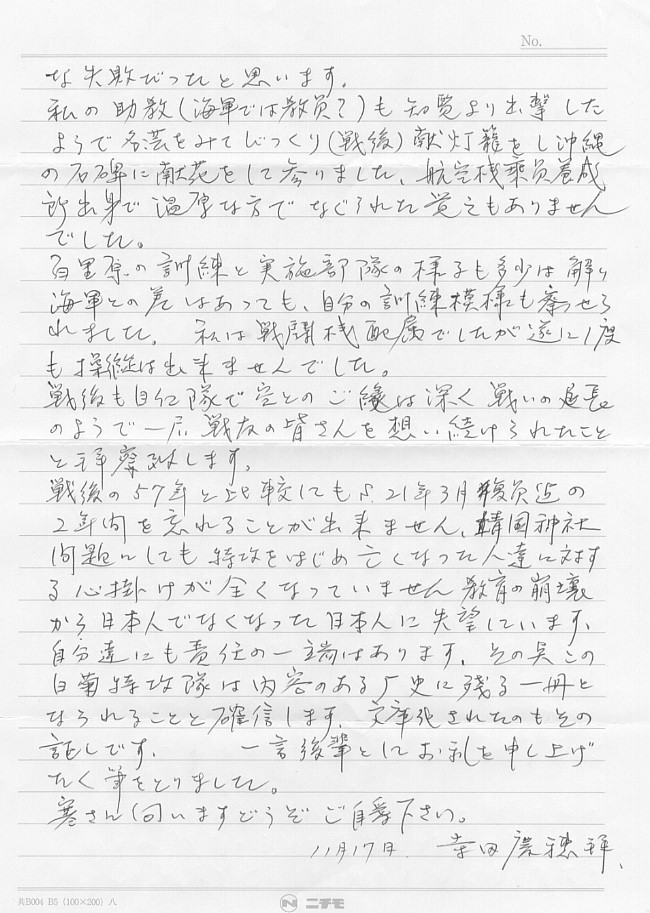 No.
な失敗だったと思います。
私の助教(海軍では教員?)も知覧より出撃した
ようで名簿をみてじっくり(戦後)献灯籠をし沖縄
の石碑に献花をして参りました、航空機乗員養成
所出身で温厚な方でなぐられた覚えもありません
でした。
百里原の訓練と実施部隊の様子も多少は解り
海軍との差はあっても、自分の訓練模様も察せら
れました。 私は戦闘機配属でしたが遂に1度
も操縦は出来ませんでした。
戦後も自仁隊で空とのご縁は深く戦いの延長
のようで一層戦友の皆さんを想い続けられたこと
と拝察致します。
戦後の57年と比較しても S.21年3月復員迄の
2年間を忘れることが出来ません、靖国神社
問題にしても特攻をはじめ亡くなった人達に対す
る心掛けが全くなっていません教育の崩壊
から日本人でなくなった日本人に失望しています、
自分達にも責任の一端はあります、その点この
白菊特攻隊は内容のある歴史に残る一冊と
なられることと確信します、文庫化されたのもその
証しです、 一言後輩としてお礼を申し上げ
たく筆をとりました。
寒さに向いますどうぞご自愛下さい。
11月17日 寺田 拝、
共B004 B5 (100×200) 八
N ニチモ